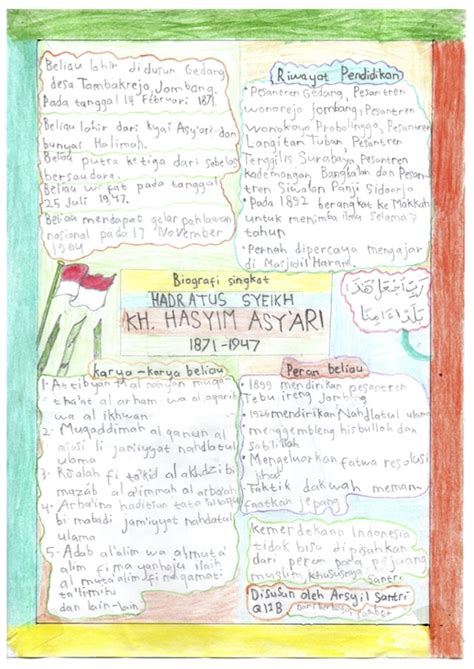 Beliau lahir di dusun Gedang
desa Tambakrejo, Jombang.
Pada tanggal 14 Februari 1871.
Beliau lahir dari kyai Asy'ari dan
bunyai Halimah.
Beliau putra ketiga dari sebelas
bersaudara.
Beliau wifat pada tanggal
25 Juli 1947.
Beliau mendapat gelar pahlawan
nasional pada 17 November
1964
Riwayat Pendidikan
• Pesantren Gedang, Pesantren
wonorejo jombang, Pesantren
wonokoyo Probolinggo, Pesantren
Langitan Tuban, Pesantren
Tenggilis Surabaya, Pesantren
kademongan Bangkalan dan Pesan-
tren Siwalan Panji Sidoarjo
• Pada 1892 berangkat ke Makkah
untuk menimba ilmu selama 7
tahun
• Pernah dipercaya mengajar
di Masjidil Haram.
Biografi singkat
HADRATUS SYEIKH
KH. HASYIM ASY'ARI
1871-1947
رب اجعل هذا
بلدا امنا
karya-karya beliau
1. Attibyan fi al nahyan muqa
tha'at al arham wa al aqarib
wa al ikhwan
2. Muqaddimah al qanun al
asasi li jamiyyat nahdlatul
ulama
3. Risalah fi ta'kid al akhdzi bi
mazab al a'immah al arba'ah
4. Arba'ina haditsan
bi mabadi jam'iyyat nahdatul
ulama
5. Adab al'alim wa almuta'
alim fima yanhaju ilaih
al muta'alim fi maqamati
ta'limihi
dan lain-lain
Peran beliau
• 1899 mendirikan pesantren
Tebu ireng Jombang
• 1926 mendirikan Nahdlatul ulama
• menggembleng hisbulloh dan
sabilillah
• Mengeluarkan fatwa resolusi
jihad
• Taktik dakwah meman-
faatkan jepang
kemerdekaan Indonesia
tidak bisa dipisahkan
dari peran para pejuang
muslim khususnya santri
Disusun oleh Arsyil Santri